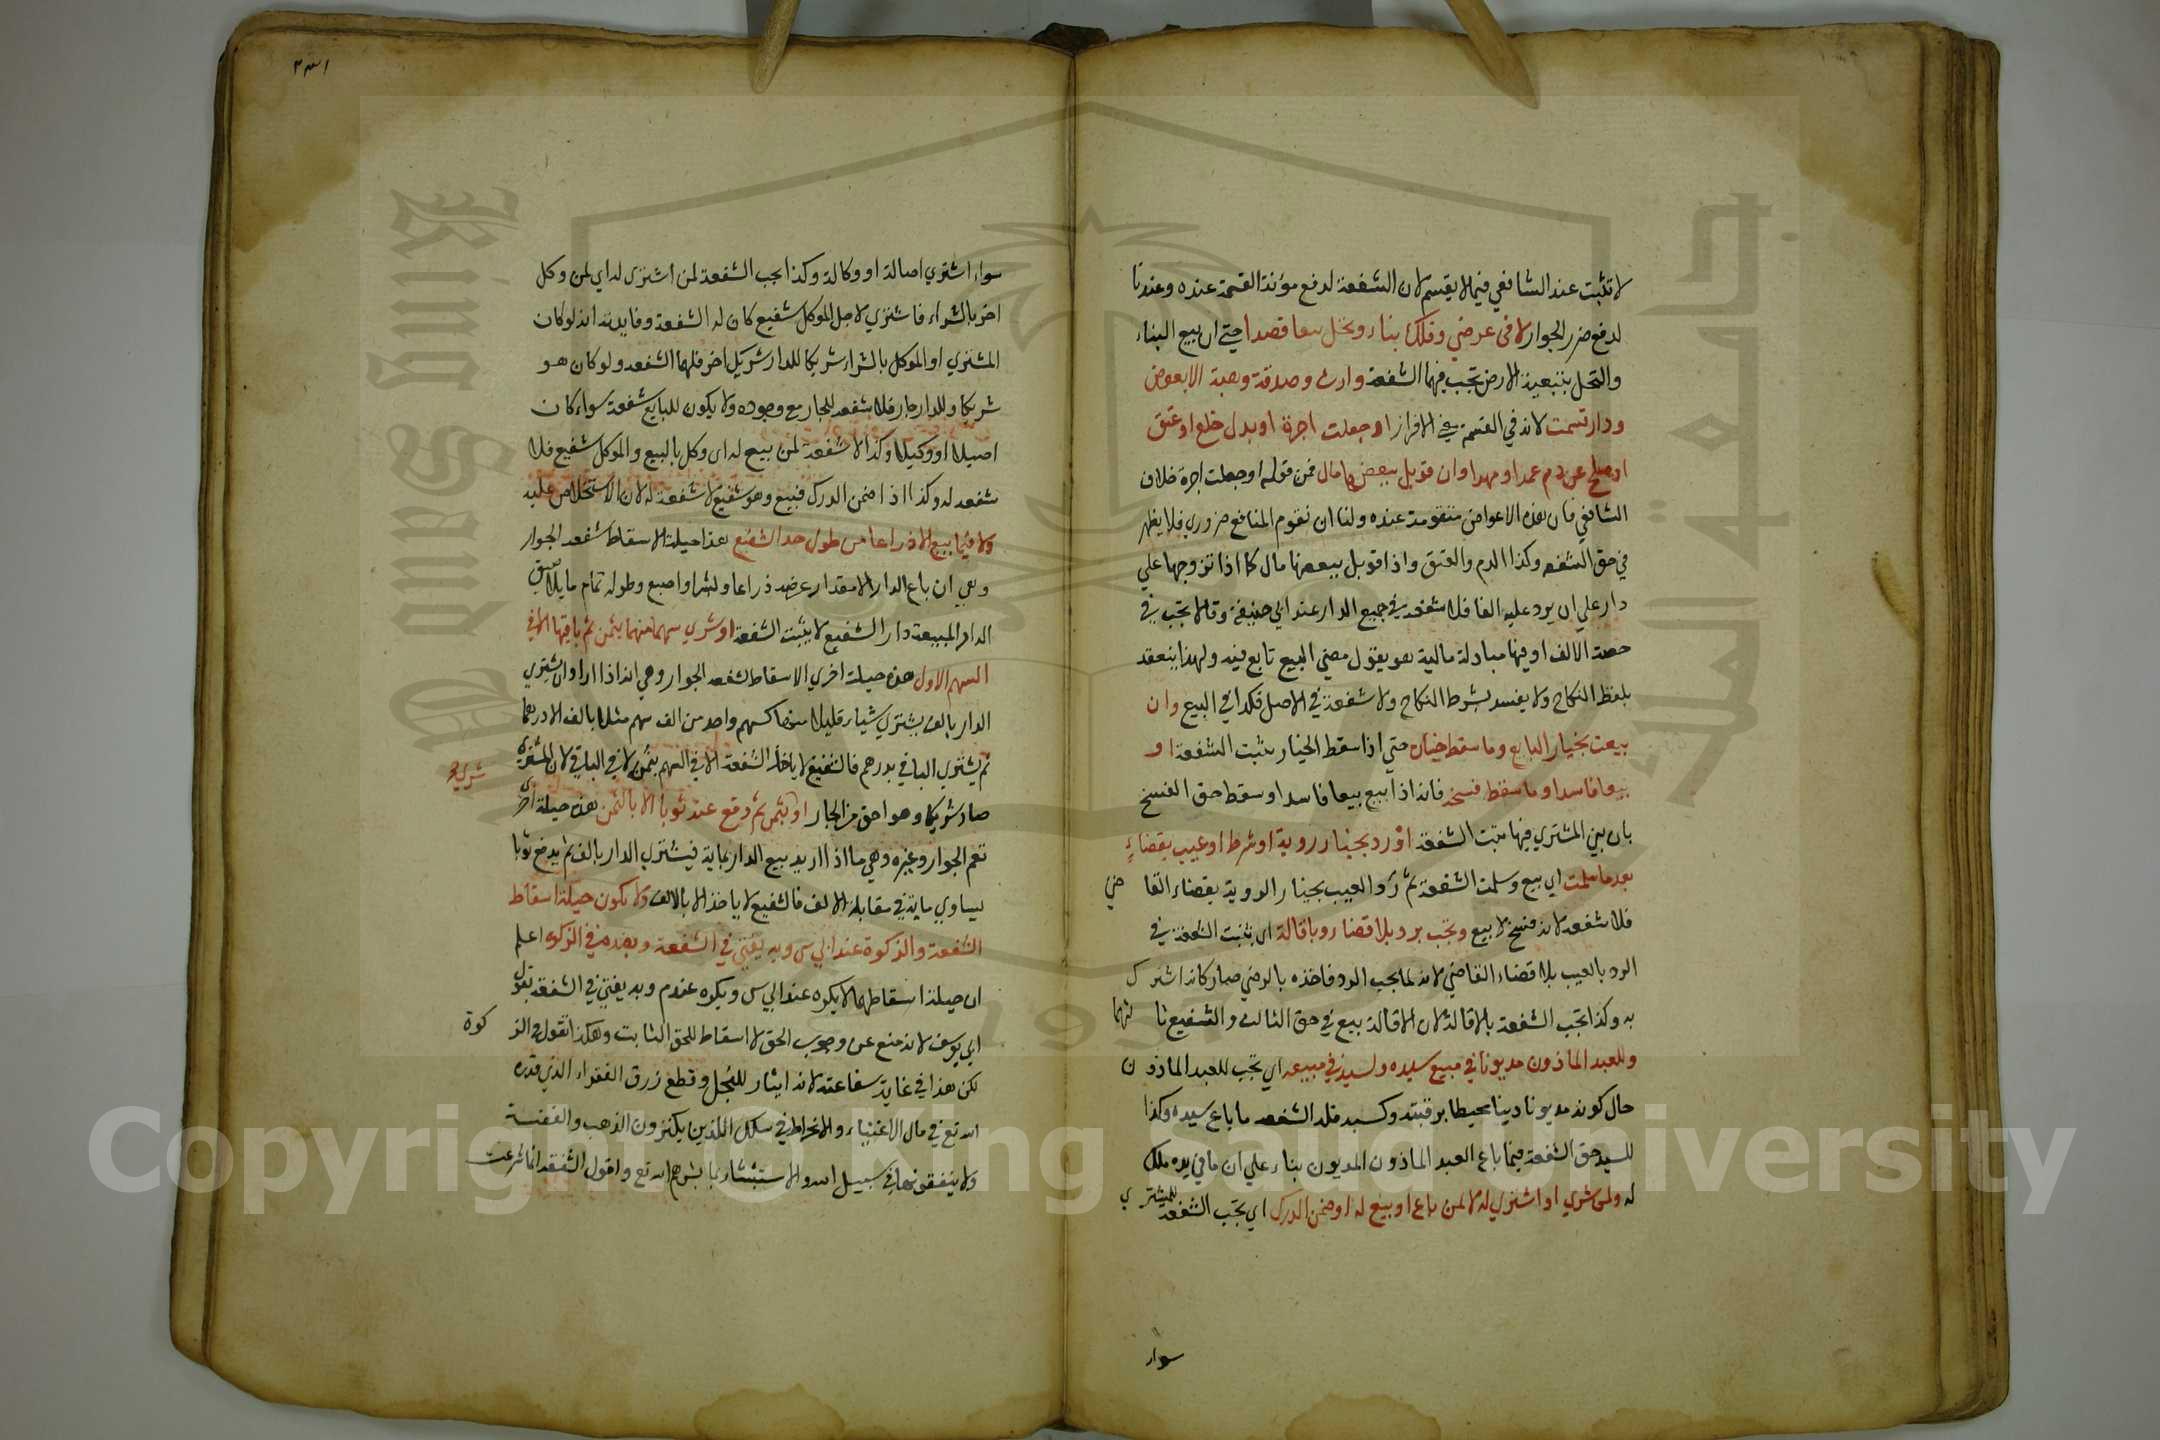 لا تثبت عند الشافعي فيما لا يقسم لان الشفعة لدفع مؤنة القسمة عنده وعندنا
لدفع ضرر الجوار لا في عرض وفلك بناء ونخل بيعا قصدا حتى ان بيع البناء
والنخل بتبعية الارض تجب فيهما الشفعة وارث وصدقة وهبة الا بعوض
ودار قسمت لانه في القسمة معنى الافراز او جعلت اجرة او بدل خلع او عتق
او صلح عن دم عمد او مهرا وان قوبل ببعضها مال فمن قوله او جعلت اجرة خلاف
الشافعي فان هذه الاعواض متقومة عنده ولنا ان تقوم المنافع ضروري فلا يظهر
في حق الشفعه وكذا الدم والعتق واذا قوبل ببعضها مال كما اذا تزوجها على
دار على ان يرد عليه الفا فلا شفعة في جميع الدار عند ابي حنيفة وقالا تجب في
حصة الالف اذ فيها مبادلة مالية هو يقول معنى البيع تابع فيه ولهذا ينعقد
بلفظ النكاح ولا يفسد بشرط النكاح ولا شفعة في الاصل فكذا في البيع وان
بيعت بخيار البايع وما سقط خياره حتى اذا سقط الخيار يثبت الشفعة او
بيعا فاسدا وما سقط فسخه فانه اذا بيع بيعا فاسدا وسقط حق الفسخ
بان بنى المشتري فيها يثبت الشفعة او رد بخيار روية او شرط او عيب بقضاء
بعد ما سلمت اي بيع وسلمت الشفعة ثم رد العيب بخيار الروية بقضاء القاضي
فلا شفعه لانه فسخ لا بيع وتجب برد بلا قضاء وباقالة اي يثبت الشفعة في
الرد بالعيب بلا قضاء القاضي لانه لما يجب الرد فاخذه بالرضى صار كانه اشترى
به وكذا تجب الشفعة بالاقالة لان الاقالة بيع في حق الثالث والشفيع ثالثهما
وللعبد الماذون مديونا في مبيع سيده ولسيده في مبيعه اي تجب للعبد الماذون
حال كونه مديونا دينا محيطا برقبته وكسبه فله الشفعه ما باع سيده وكذا
للسيد حق الشفعة فيما باع العبد الماذون المديون بناء على ان ما في يده ملك
له ولمن شرى او اشترى له لا لمن باع او بيع له او ضمن الدرك اي تجب الشفعة للمشتري
سواء
سواء اشترى اصالة او وكالة وكذا تجب الشفعة لمن اشترى له اي لمن وكل
اخر بالشراء فاشترى لاجل الموكل شفيع كان له الشفعة وفايدته انه لو كان
المشتري او الموكل بالشراء شريكا للدار شريك اخر فلهما الشفعه ولو كان هو
شريكا وللدار جار فلا شفعه للجار مع وجوده ولا يكون للبايع شفعة سواء كان
اصيلا او وكيلا وكذا لا شفعة لمن بيع له اى وكل بالبيع والموكل شفيع فلا
شفعه له وكذا اذا ضمن الدرك فبيع وهو شفيع لا شفعة له لان الاستخلاص عليه
ولا فيما بيع الا ذراعا من طول حد الشفيع هذا حيلة لاسقاط شفعه الجوار
وهي ان باع الدار الا مقدار عرضه ذراعا او شبرا او اصبع وطوله تمام ما يلاصق
الدار المبيعة دار الشفيع لا يثبت الشفعة او شرى سهما منهما بثمن ثم باقيها الا في
السهم الاول هذه حيلة اخرى لاسقاط شفعه الجوار وهي انه اذا اراد ان يشتري
الدار بالف يشتري شياء قليلا منها كسهم واحد من الف سهم مثلا بالف الا درهما
ثم يشتري الباقي بدرهم فالشفيع لا ياخذ الشفعة الا في السهم بثمنه لا في الباقي لان المشتري
صار شريكا وهو احق من الجار او بثمن ثم دفع عنه ثوبا الا بالثمن هذه حيلة اخرى
تعم الجوار وغيره وهي ما اذا اريد بيع الدار بماية فيشترى الدار بالف ثم يدفع ثوبا
يساوي ماية في مقابلة الالف فالشفيع لا ياخذ الا بالالف ولا يكون حيلة اسقاط
الشفعة والزكوة عند ابي س وبه يفتى في الشفعة وبضده في الزكوه اعلم
ان حيلة اسقاطهما لا يكره عند ابي س ويكره عند م وبه يفتى في الشفعة بقول
ابي يوسف لانه منع عن وجوب الحق لا اسقاط للحق الثابت وهكذا نقول في الزكوة
لكن هذا في غاية شفاعته لانه ايثار للبخل وقطع رزق الفقراء الذي قدره
الله تع في مال الاغنياء والانخراط في سلك الذين يكنزون الذهب والفضة
ولا ينفقونها في سبيل الله والاستبشار بما بشرهم الله تع واقول الشفقه انما شرعت